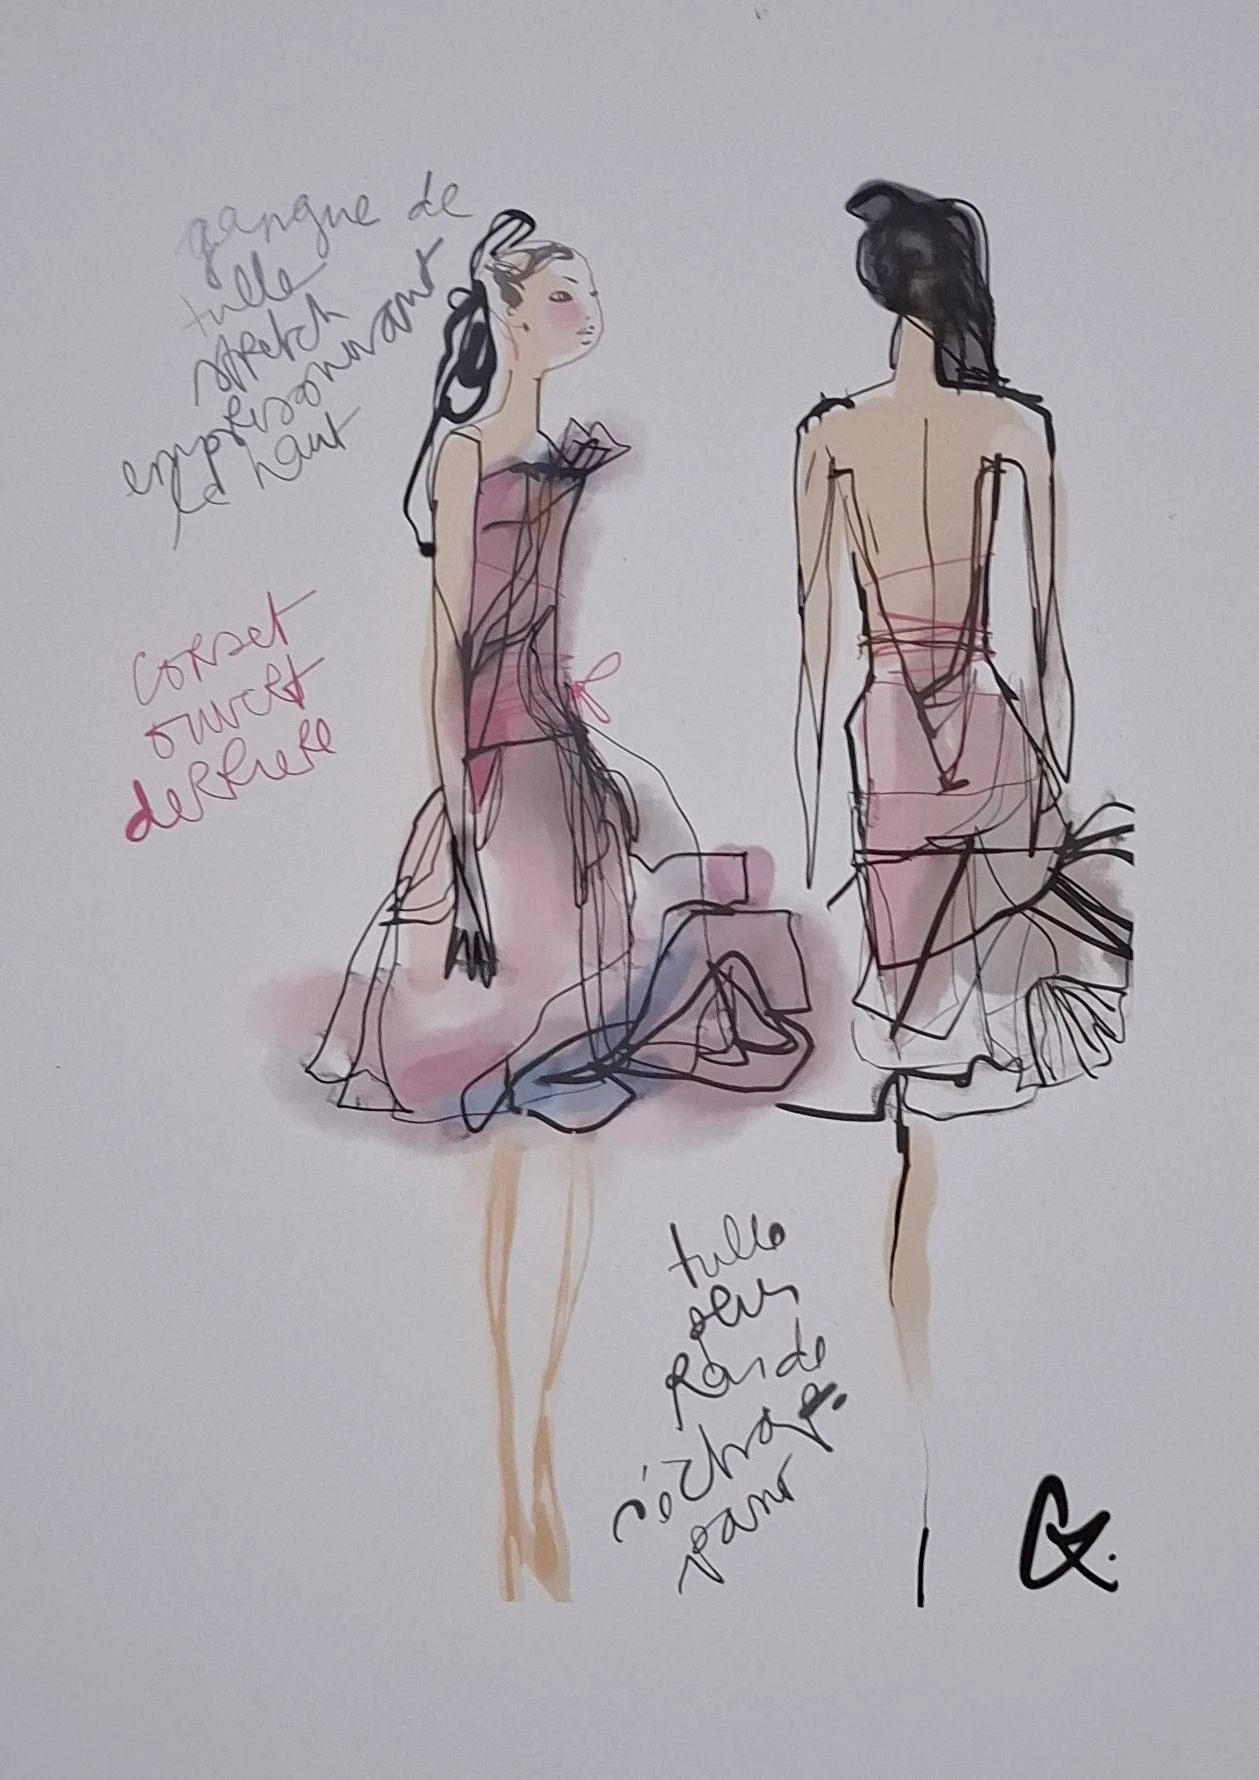 gangue de
tulle
stretch
emprisonnant
le haut
corset
ouvert
derrière
tulle
plus
Raide
s'échap
pant